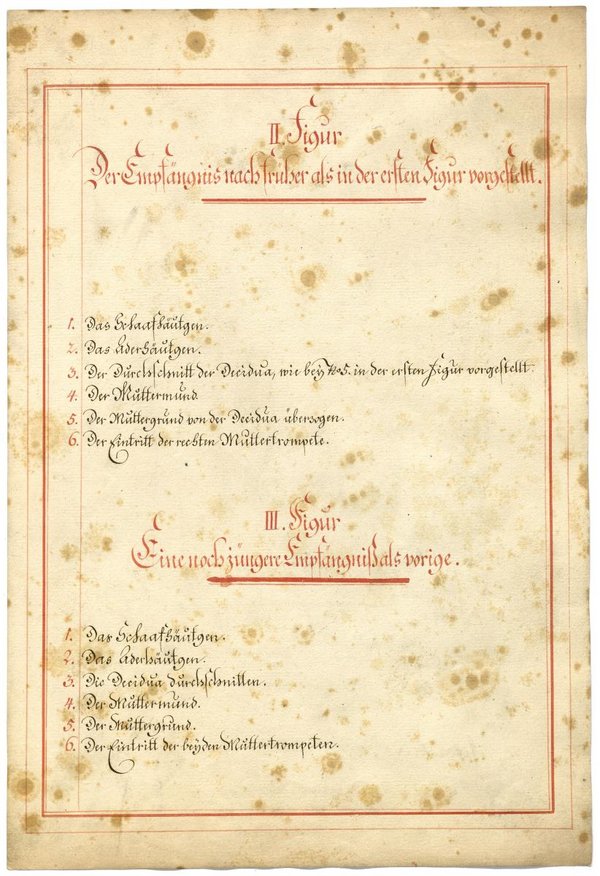 II. Figur
Der Empfängnis noch früher als in der ersten Figur vorgestellt.
1. Das Schaafhäutgen.
2. Das Aderhäutgen.
3. Der Durchschnitt der Decidua, wie bey No 5. in der ersten Figur vorgestellt.
4. Der Muttermund
5. Der Muttergrund von der Decidua überzogen.
6. Der Eintritt der rechten Muttertrompete.
III. Figur
Eine noch jüngere Empfängniß als vorige.
1. Das Schaafhäutgen.
2. Das Aderhäutgen.
3. Die Decidua durchschnitten.
4. Der Muttermund.
5. Der Muttergrund.
6. Der Eintritt der beyden Muttertrompeten.